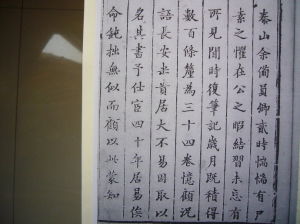 泰山余備員卿貳時惴惴有尸
素之懼在公之暇結習未忘有
所見聞時復筆記歲月既積得
數百條釐為三十四卷憶顧況
語長安米貴居大不易因取以
名其書予仕宦四十年居易俟
命鈍拙無似而顧以此蒙知